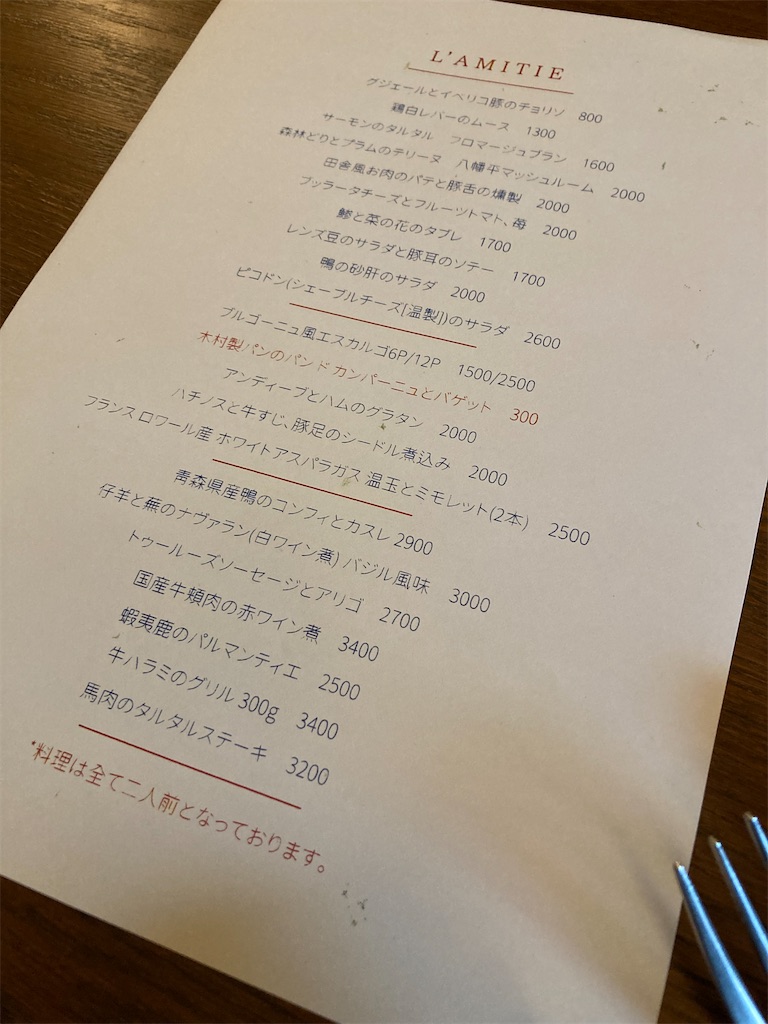 L'AMITIE
グジェールとイベリコ豚のチョリソ 800
鶏白レバーのムース 1300
サーモンのタルタル フロマージュブラン 1600
森林どりとプラムのテリーヌ 八幡平マッシュルーム 2000
田舎風お肉のパテと豚舌の燻製 2000
ブッラータチーズとフルーツトマト、苺 2000
鯵と菜の花のタブレ 1700
レンズ豆のサラダと豚耳のソテー 1700
鴨の砂肝のサラダ 2000
ピコドン(シェーブルチーズ[温製])のサラダ 2600
ブルゴーニュ風エスカルゴ6P/12P 1500/2500
木村製パンのパンド カンパーニュとバゲット 300
アンディーブとハムのグラタン 2000
ハチノスと牛すじ、豚足のシードル煮込み 2000
フランス ロワール産 ホワイトアスパラガス 温玉とミモレット(2本) 2500
青森県産鴨のコンフィとカスレ 2900
仔羊と蕪のナヴァラン(白ワイン煮) バジル風味 3000
トゥールーズソーセージとアリゴ 2700
国産牛頬肉の赤ワイン煮 3400
蝦夷鹿のパルマンティエ 2500
牛ハラミのグリル 300g 3400
馬肉のタルタルステーキ 3200
*料理は全て二人前となっております。